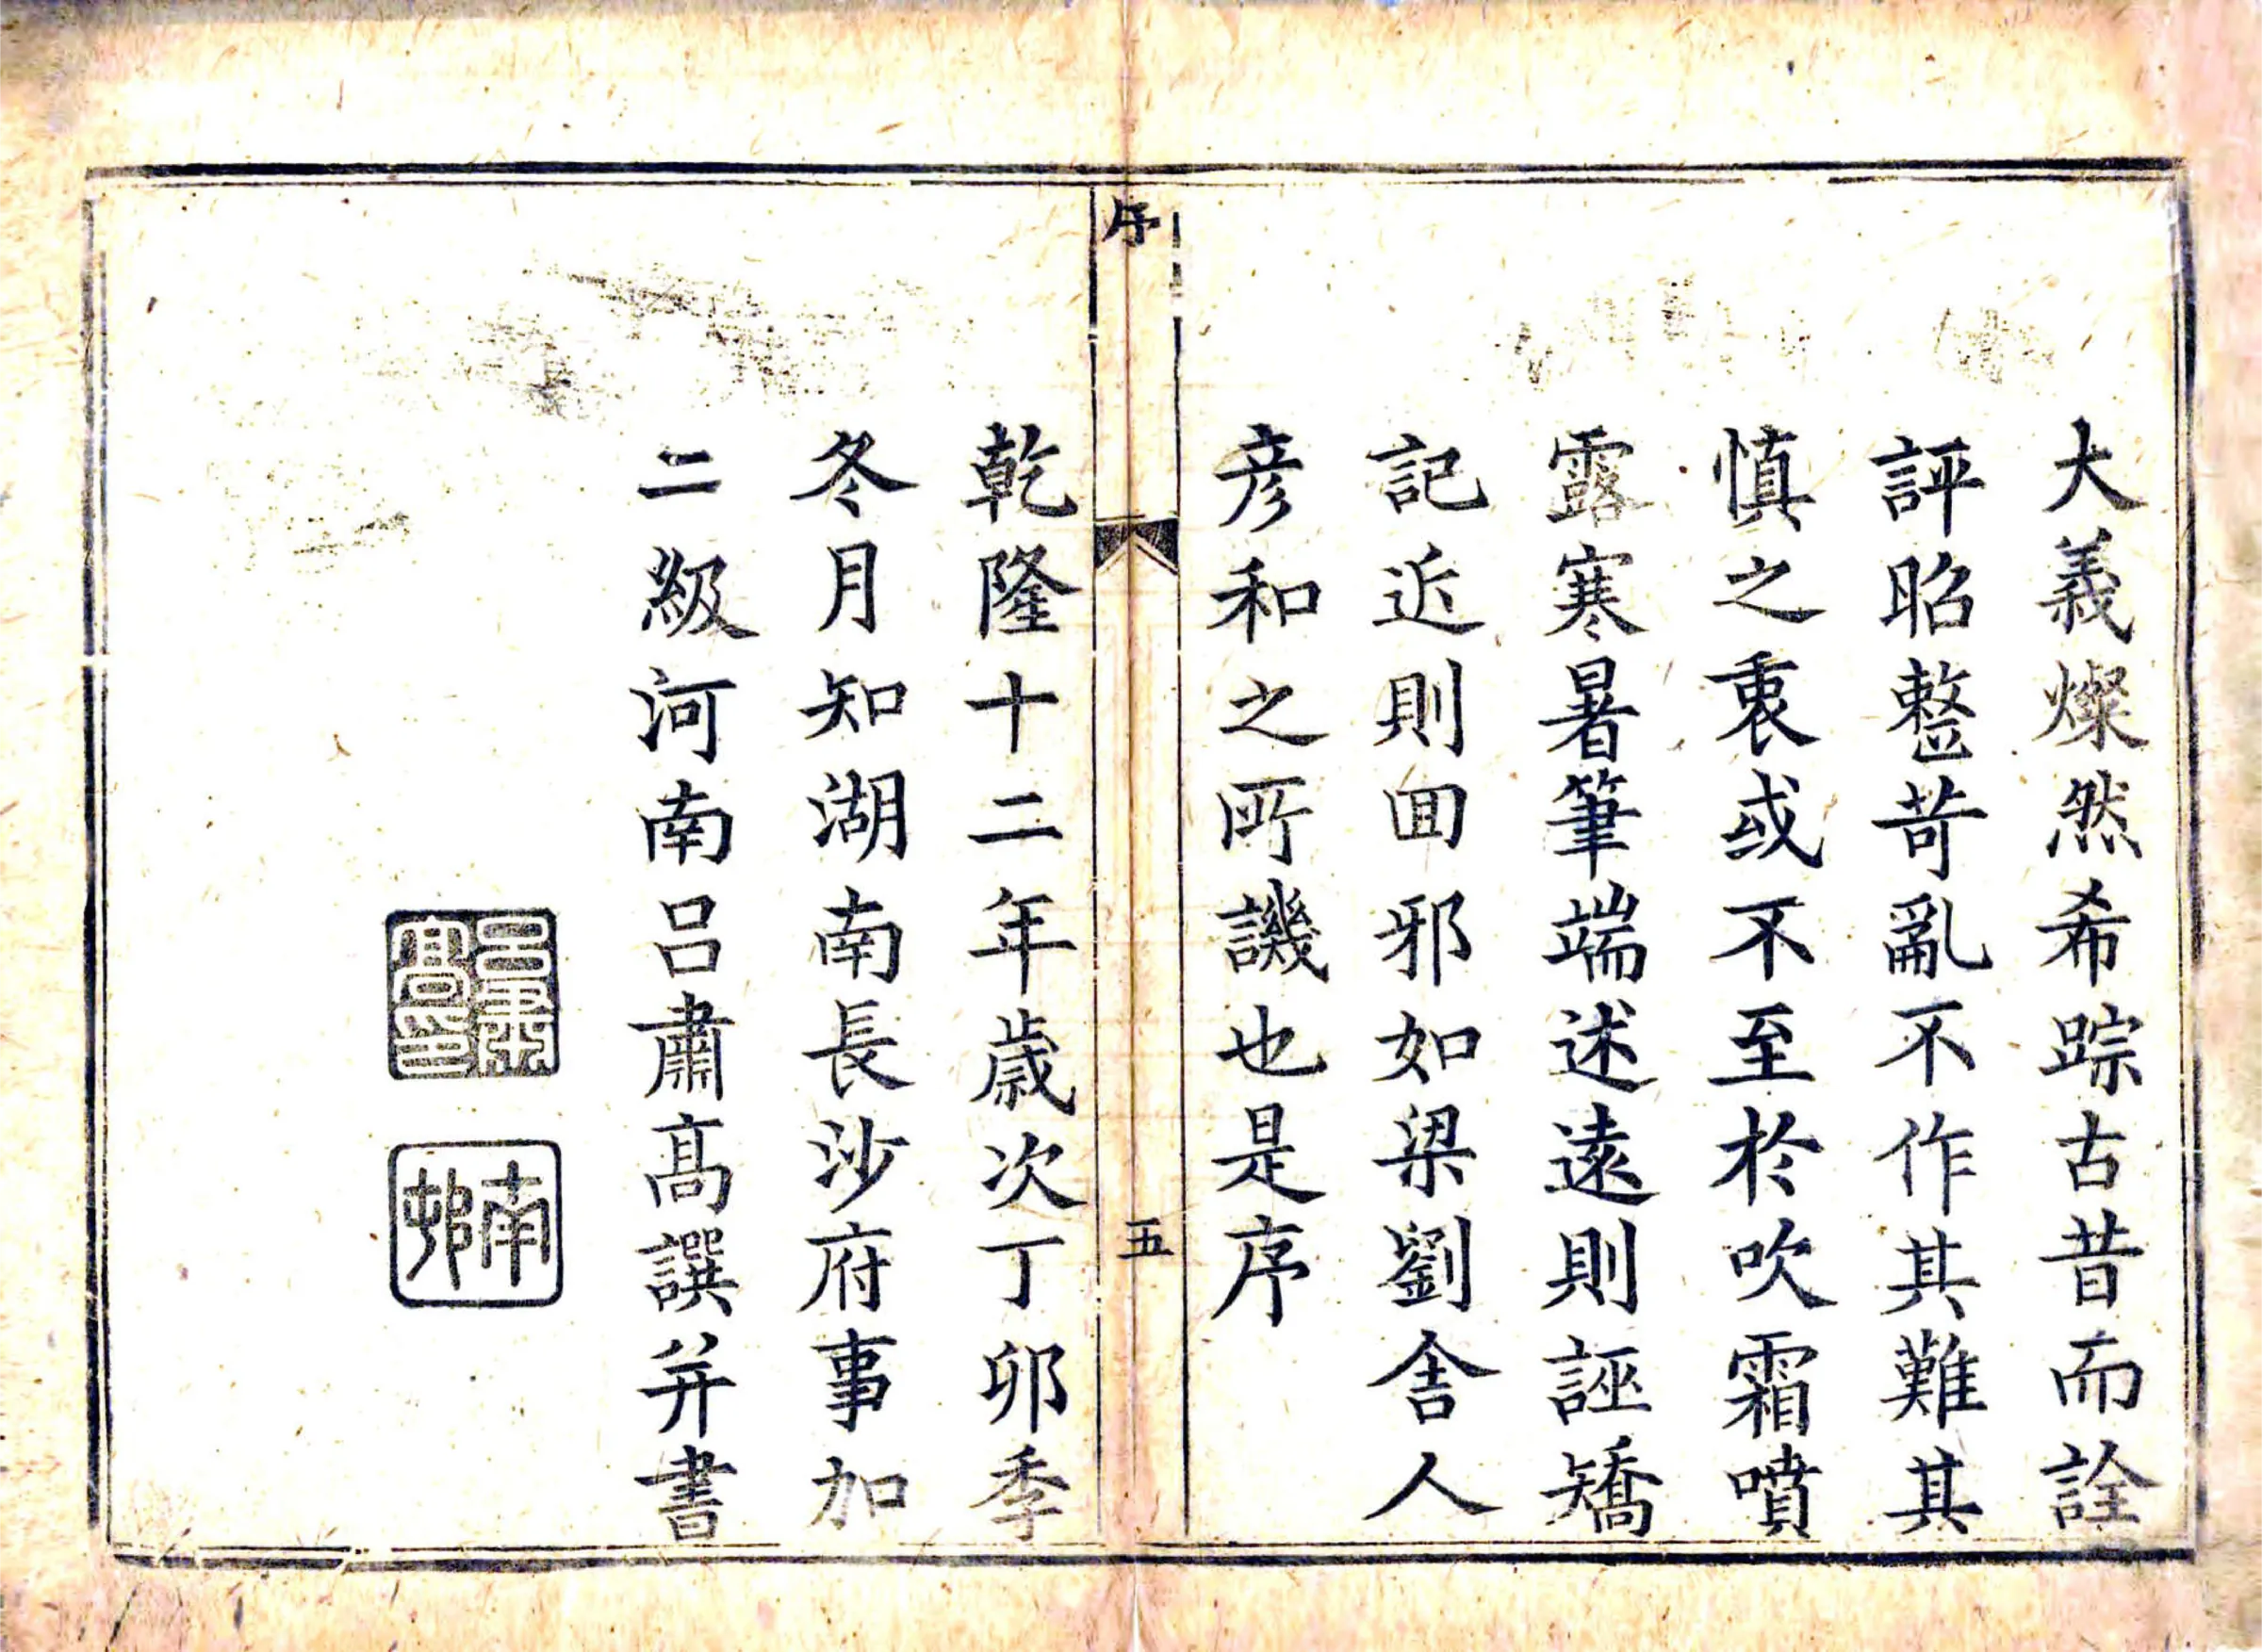 大義燦然希踪古昔而詮
評昭整苛亂不作其難其
慎之衷或不至於吹霜噴
露寒暑筆端述遠則誣矯
記近則回邪如梁劉舍人
彥和之所譏也是序
序
五
乾隆十二年歲次丁卯季
冬月知湖南長沙府事加
二級河南呂肅高譔并書
呂肅高印
南邨